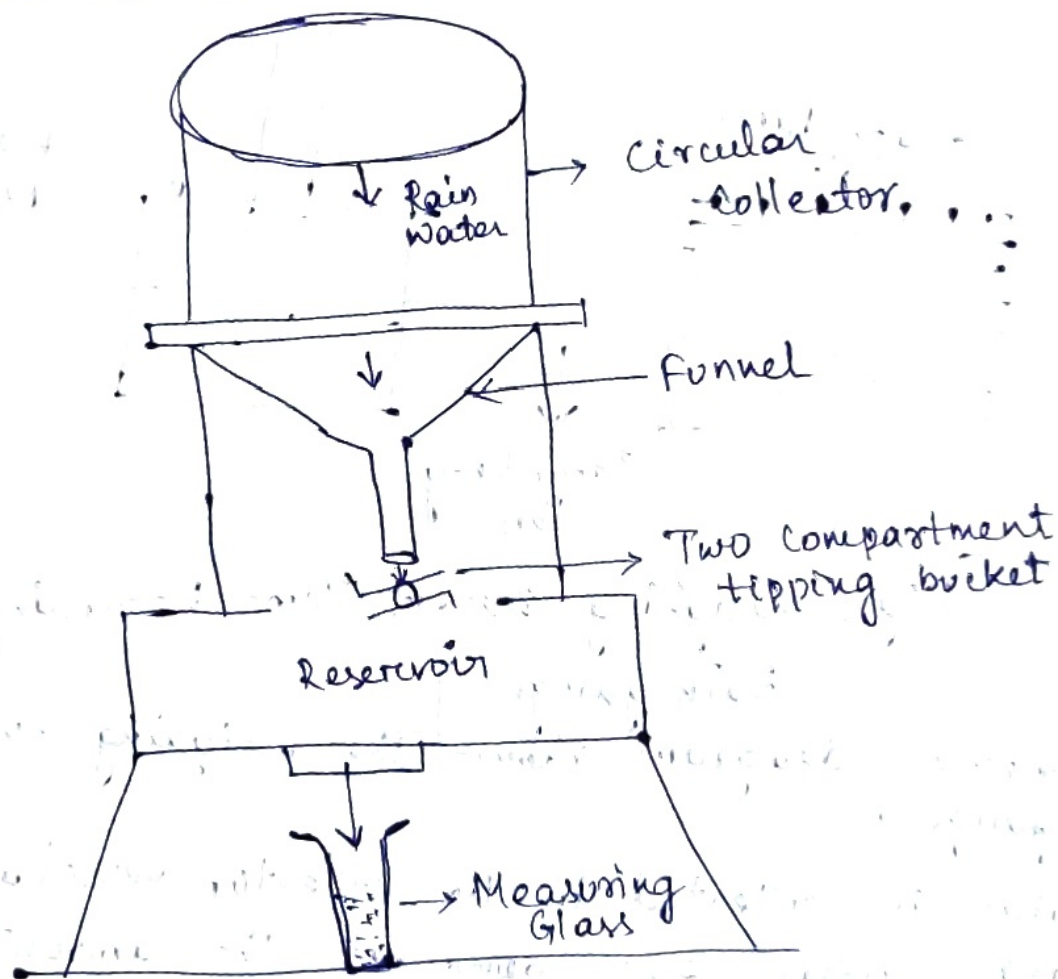 Rain
Water
Circular
collector.
Funnel
Two compartment
tipping bucket
Reservoir
Measuring
Glass